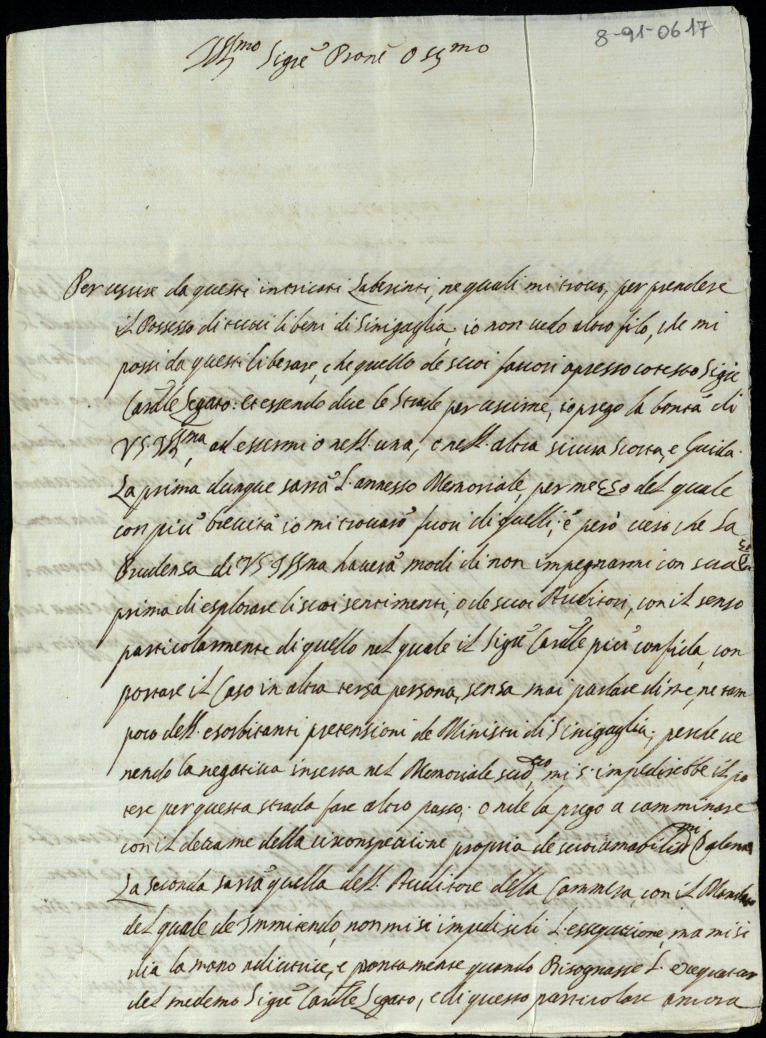 8-91-0617
Illmo Sigre Prone Ossmo
Per uscire da questi intricati Laberinti, ne quali mi trovo, per prendere
il Possesso di tutti li beni di Sinigaglia, io non vedo altro filo, che mi
possi da questi liberare, che quello de suoi favori apresso cotesto Sigre
Cardle Legato: et essendo due le Strade per uscirne, io prego la bontà di
VS Illma, ad essermi o nell'una, o nell'altra sicura Scorta, e Guida.
La prima dunque sarrà l'annesso Memoriale, per mezzo del quale
con più brevità io mi trovarò fuori di quelli; è però vero che la
Prudenza di VS Illma haverà modi di non impegnarmi con sua
prima di esplorare li suoi sentimenti, o de suoi Auditori, con il senso
particolarmente di quello nel quale il Sigre Cardle più confida, con
portare il Caso in altra terza persona, senza mai parlare di me, ne tam
poco dell'esorbitanti pretensioni de Ministri di Sinigaglia; perche ve
nendo la negativa inserta nel Memoriale sudto, mi s'impedirebbe il po
tere per questa strada fare altro passo; onde la prego a camminare
con il dettame della circonspezione propria de suoi
La Seconda sarrà quella dell'Auditore della Cammera, con il
del quale de Immittendo, non mi si impedischi l'essequzione, ma mi si
dia la mano adiutrice, e prontamente quando Bisognasse l'
del medemo Sigre Cardle Legato, e di questo particolare ancora